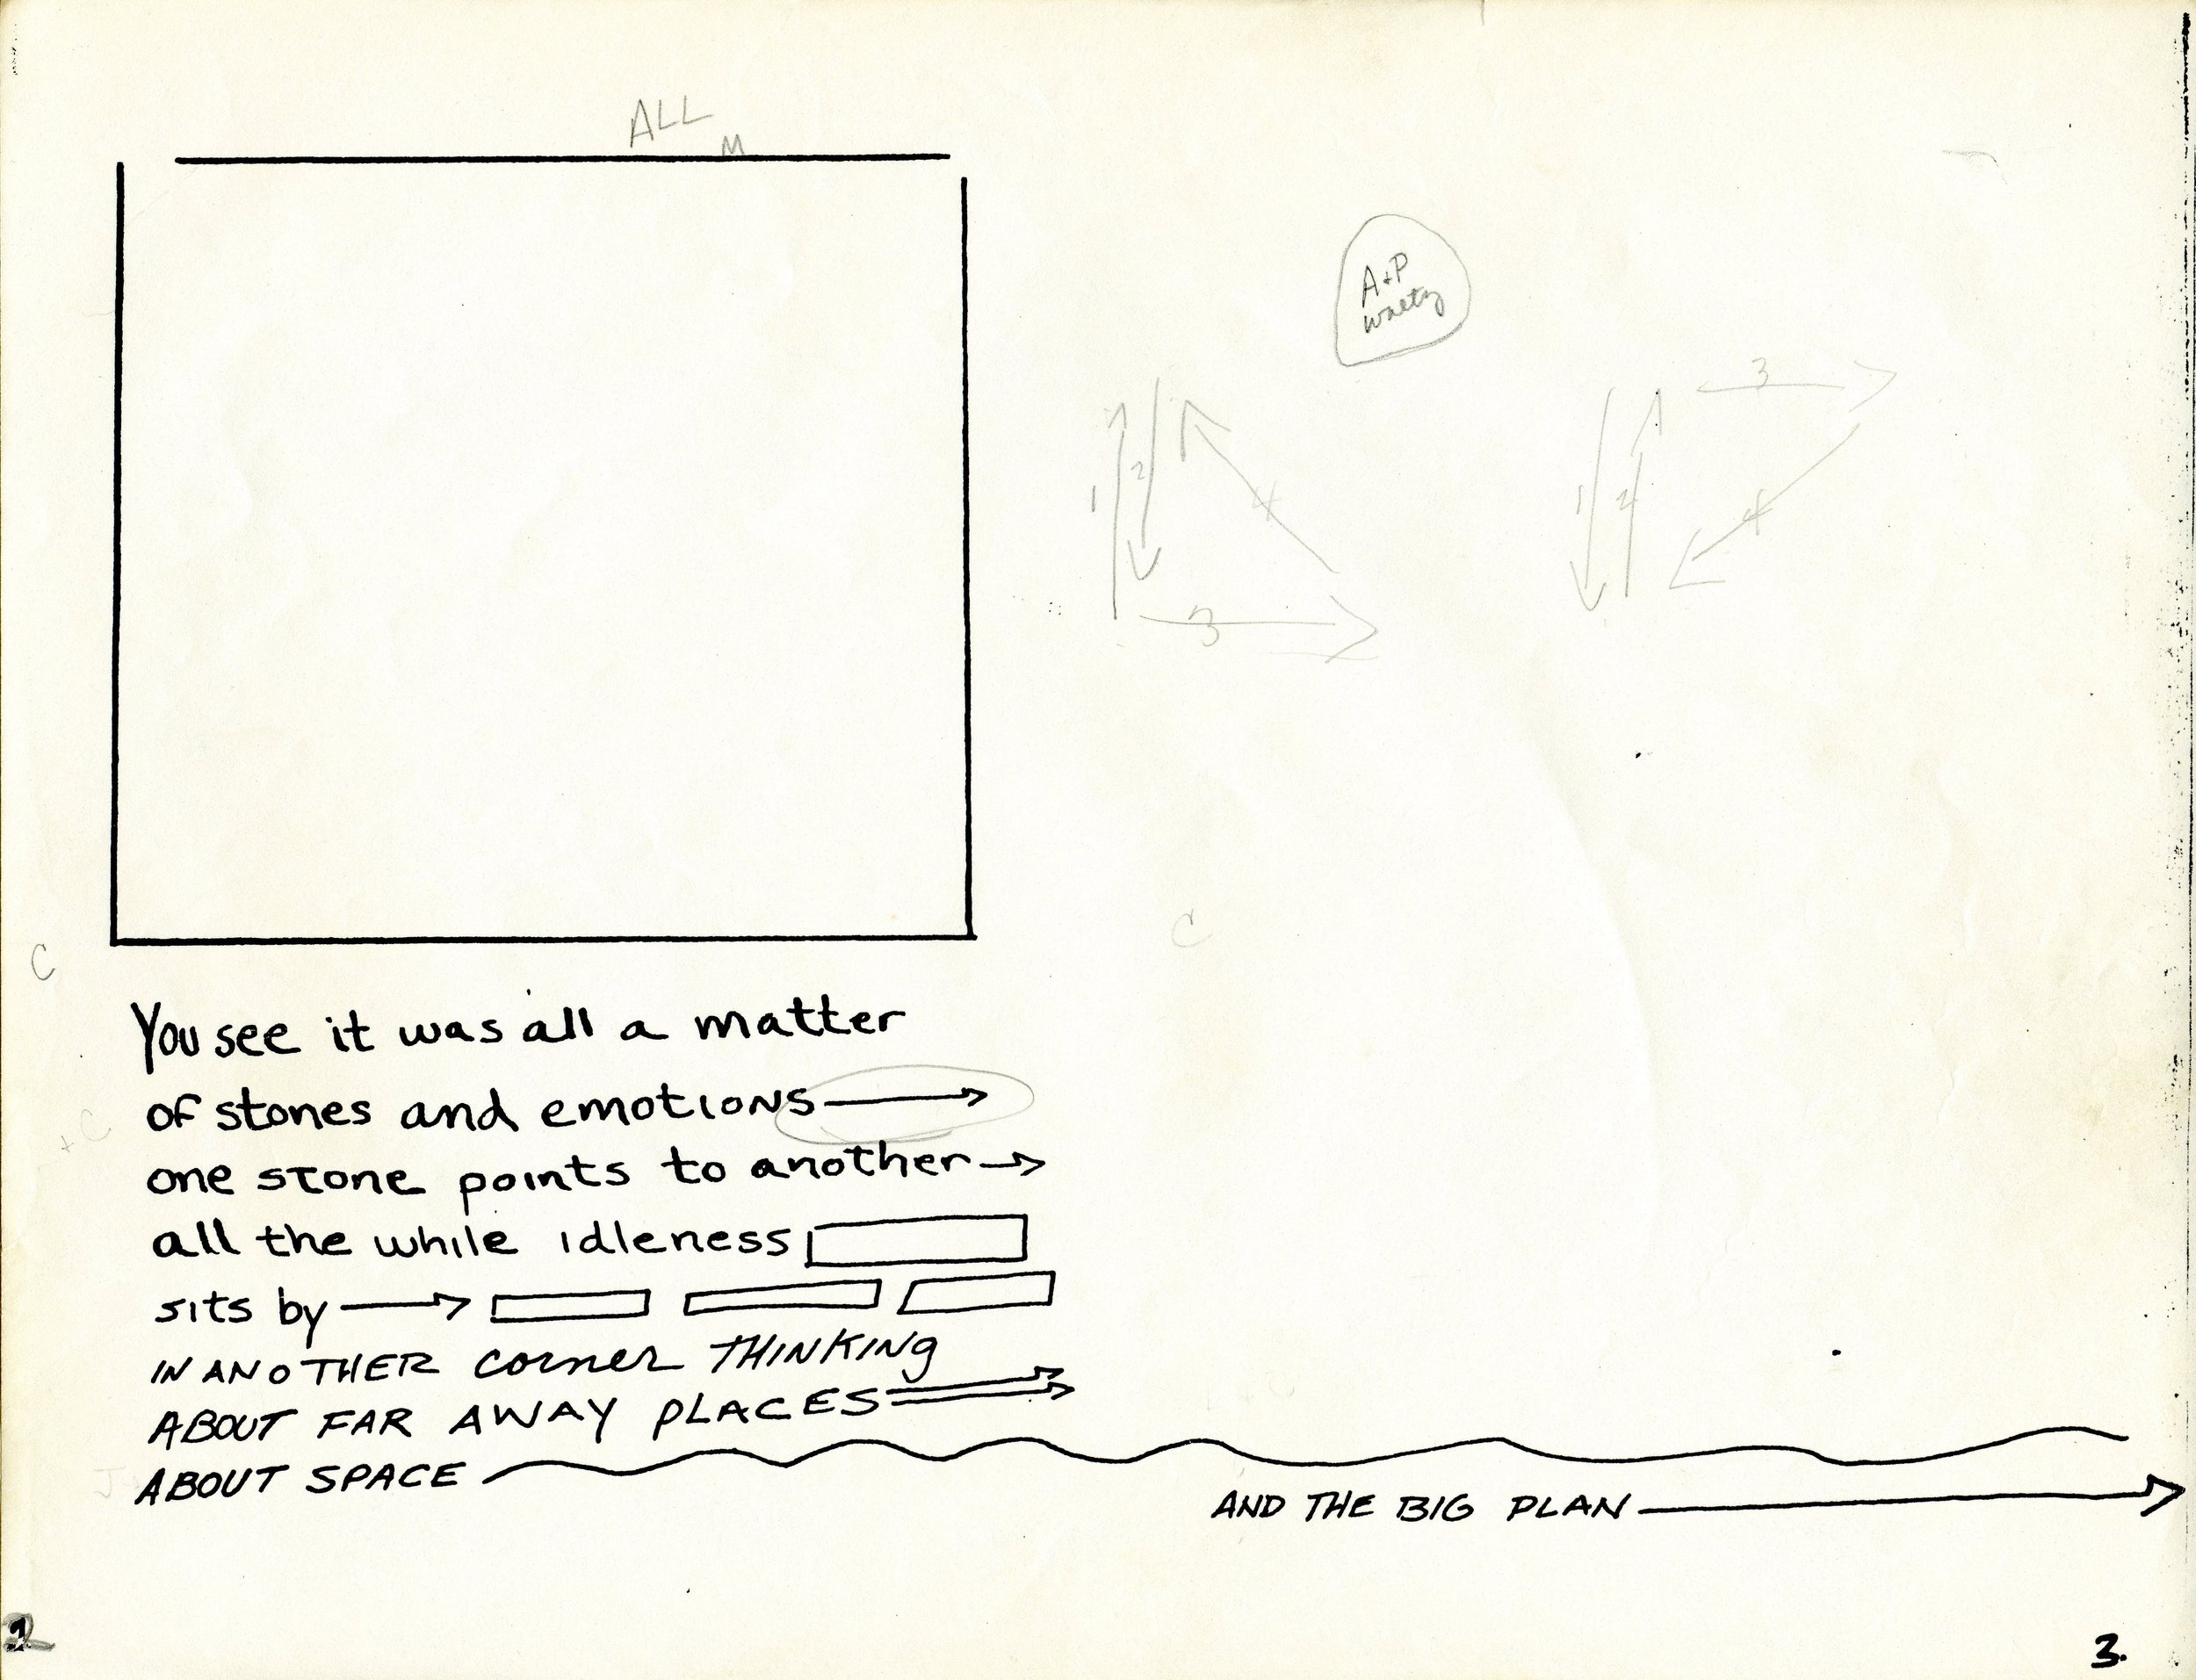 ALL
M
A+P
waltz
3
1
2
4
1
2
4
3
C
C
You see it was all a matter
of stones and emotions
one stone points to another
all the while idleness
sits by
IN ANOTHER corner THINKINg
ABOUT FAR AWAY pLACES
+C
ABOUT SPACE
AND THE BIG PLAN
2
3.